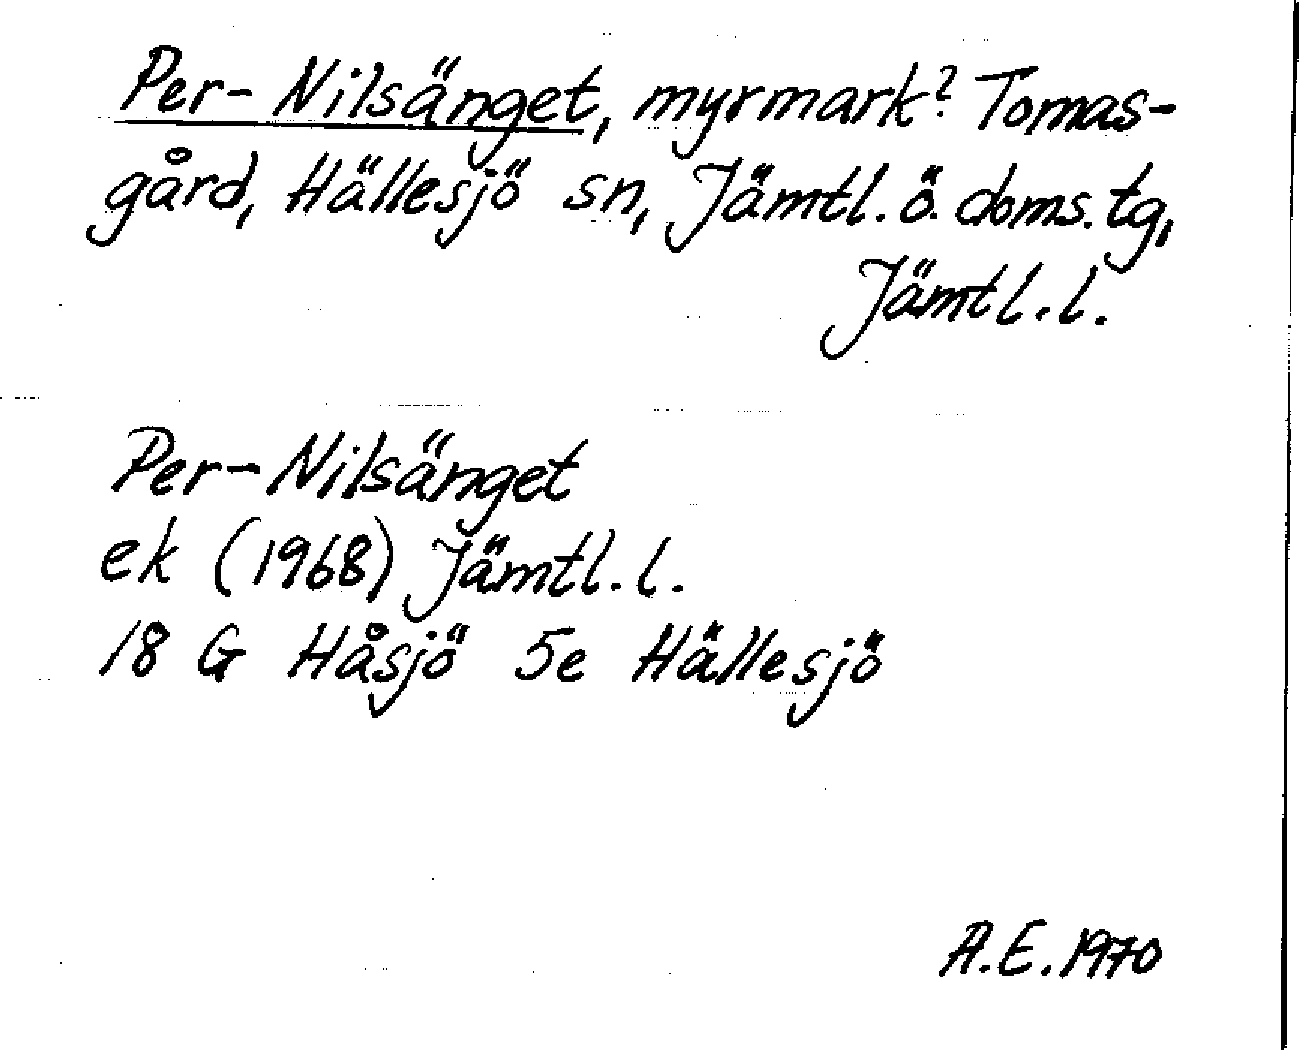 Per-Nilsänget, myrmark? Tomas-
gård, Hällesjö sn, Jämtl. ö. doms. tg,
Jämtl. l.
Per-Nilsänget
ek (1968) Jämtl. l.
18 G Håsjö 5e Hällesjö
A.E. 1970